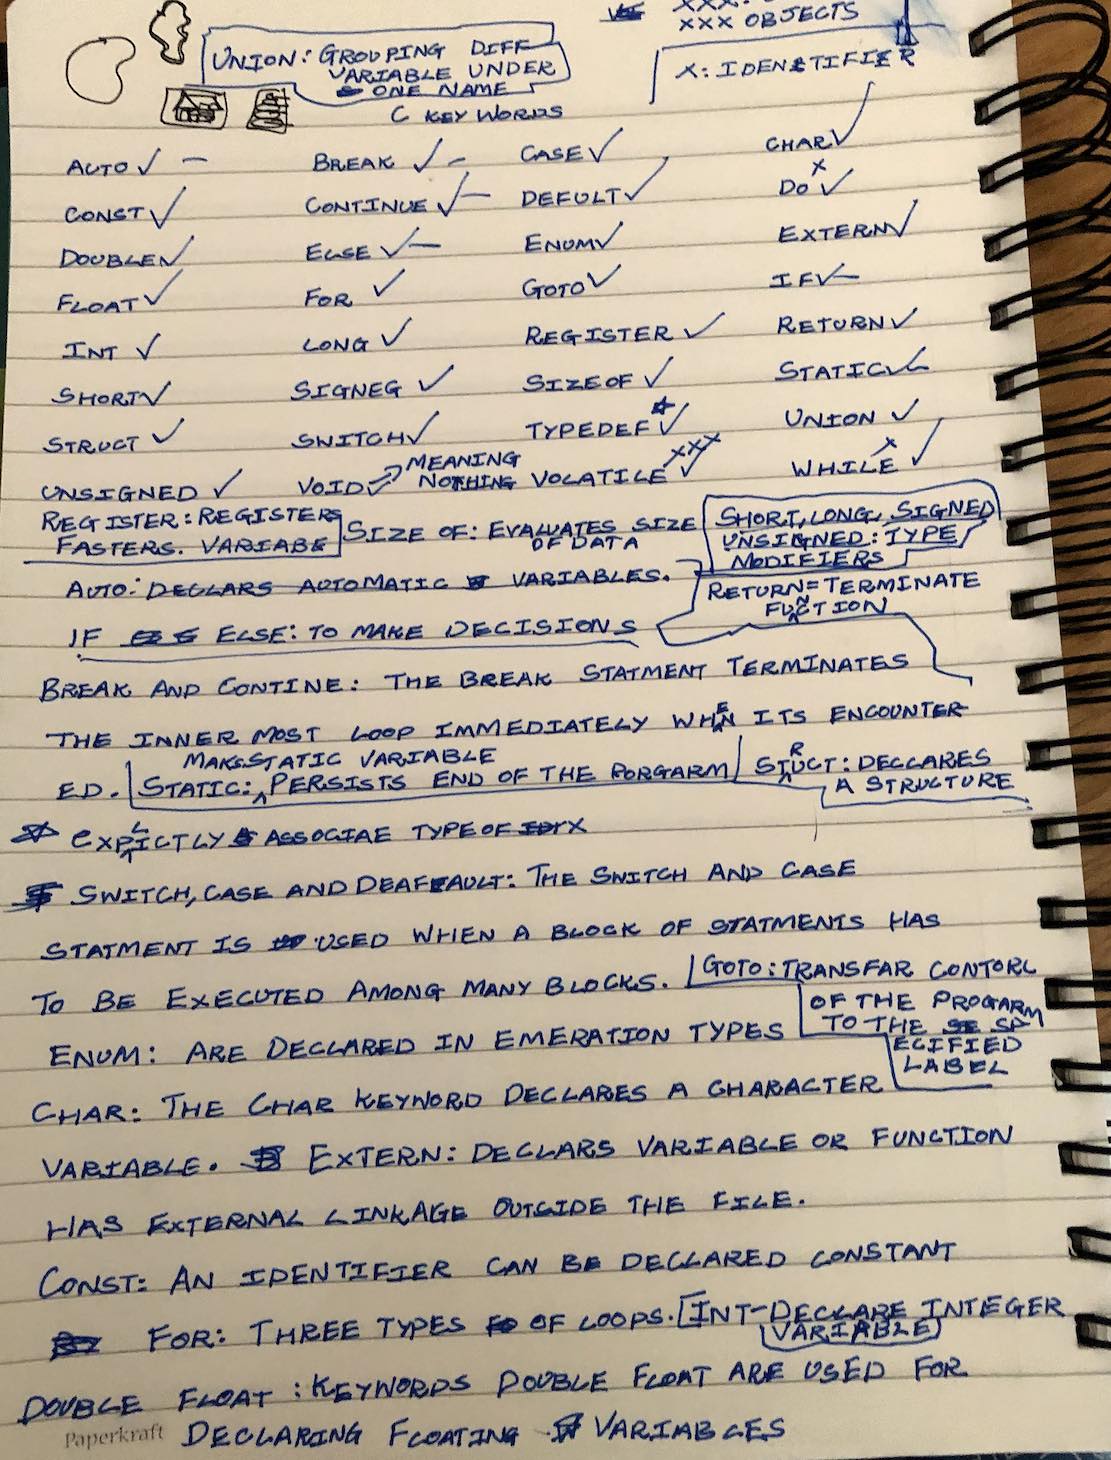 XXX OBJECTS
UNION: GROUPING DIFF
VARIABLE UNDER
ONE NAME
X: IDENTIFIER
C KEYWORDS
AUTO ✓ – BREAK ✓ – CASE ✓ CHAR ✓
CONST ✓ CONTINUE ✓ – DEFULT ✓ DO X ✓
DOUBLE ✓ ELSE ✓ – ENUM ✓ EXTERN ✓
FLOAT ✓ FOR ✓ GOTO ✓ IF ✓ –
INT ✓ LONG ✓ REGISTER ✓ RETURN ✓
SHORT ✓ SIGNEG ✓ SIZEOF ✓ STATIC ✓
STRUCT ✓ SWITCH ✓ TYPEDEF ☆ ✓ UNION ✓
UNSIGNED ✓ VOID ✓ → MEANING NOTHING VOLATILE XXX ✓ WHILE X ✓
REGISTER: REGISTERS
FASTERS. VARIABE
SIZE OF: EVALUATES SIZE
OF DATA
SHORT, LONG, SIGNED
UNSIGNED: TYPE
MODIFIERS
AUTO: DECLARS AUTOMATIC VARIABLES.
RETURN = TERMINATE
FUNCTION
IF ELSE: TO MAKE DECISIONS
BREAK AND CONTINE: THE BREAK STATMENT TERMINATES
THE INNER MOST LOOP IMMEDIATELY WHEN ITS ENCOUNTER
ED.
STATIC: MAKS STATIC VARIABLE PERSISTS END OF THE PORGARM
STRUCT: DECLARES
A STRUCTURE
☆ EXPLICTLY ASSOCIAE TYPE OF X
SWITCH, CASE AND DEAFEAULT: THE SWITCH AND CASE
STATMENT IS USED WHEN A BLOCK OF STATMENTS HAS
TO BE EXECUTED AMONG MANY BLOCKS.
GOTO: TRANSFAR CONTORL
OF THE PROGARM
TO THE SP
ECIFIED
LABEL
ENUM: ARE DECLARED IN EMERATION TYPES
CHAR: THE CHAR KEYWORD DECLARES A CHARACTER
VARIABLE. EXTERN: DECLARS VARIABLE OR FUNCTION
HAS EXTERNAL LINKAGE OUTSIDE THE FILE.
CONST: AN IDENTIFIER CAN BE DECLARED CONSTANT
FOR: THREE TYPES OF LOOPS.
INT-DECLARE INTEGER
VARIABLE
DOUBLE FLOAT: KEYWORDS DOUBLE FLOAT ARE USED FOR
DECLARING FLOATING VARIABLES
Paperkraft